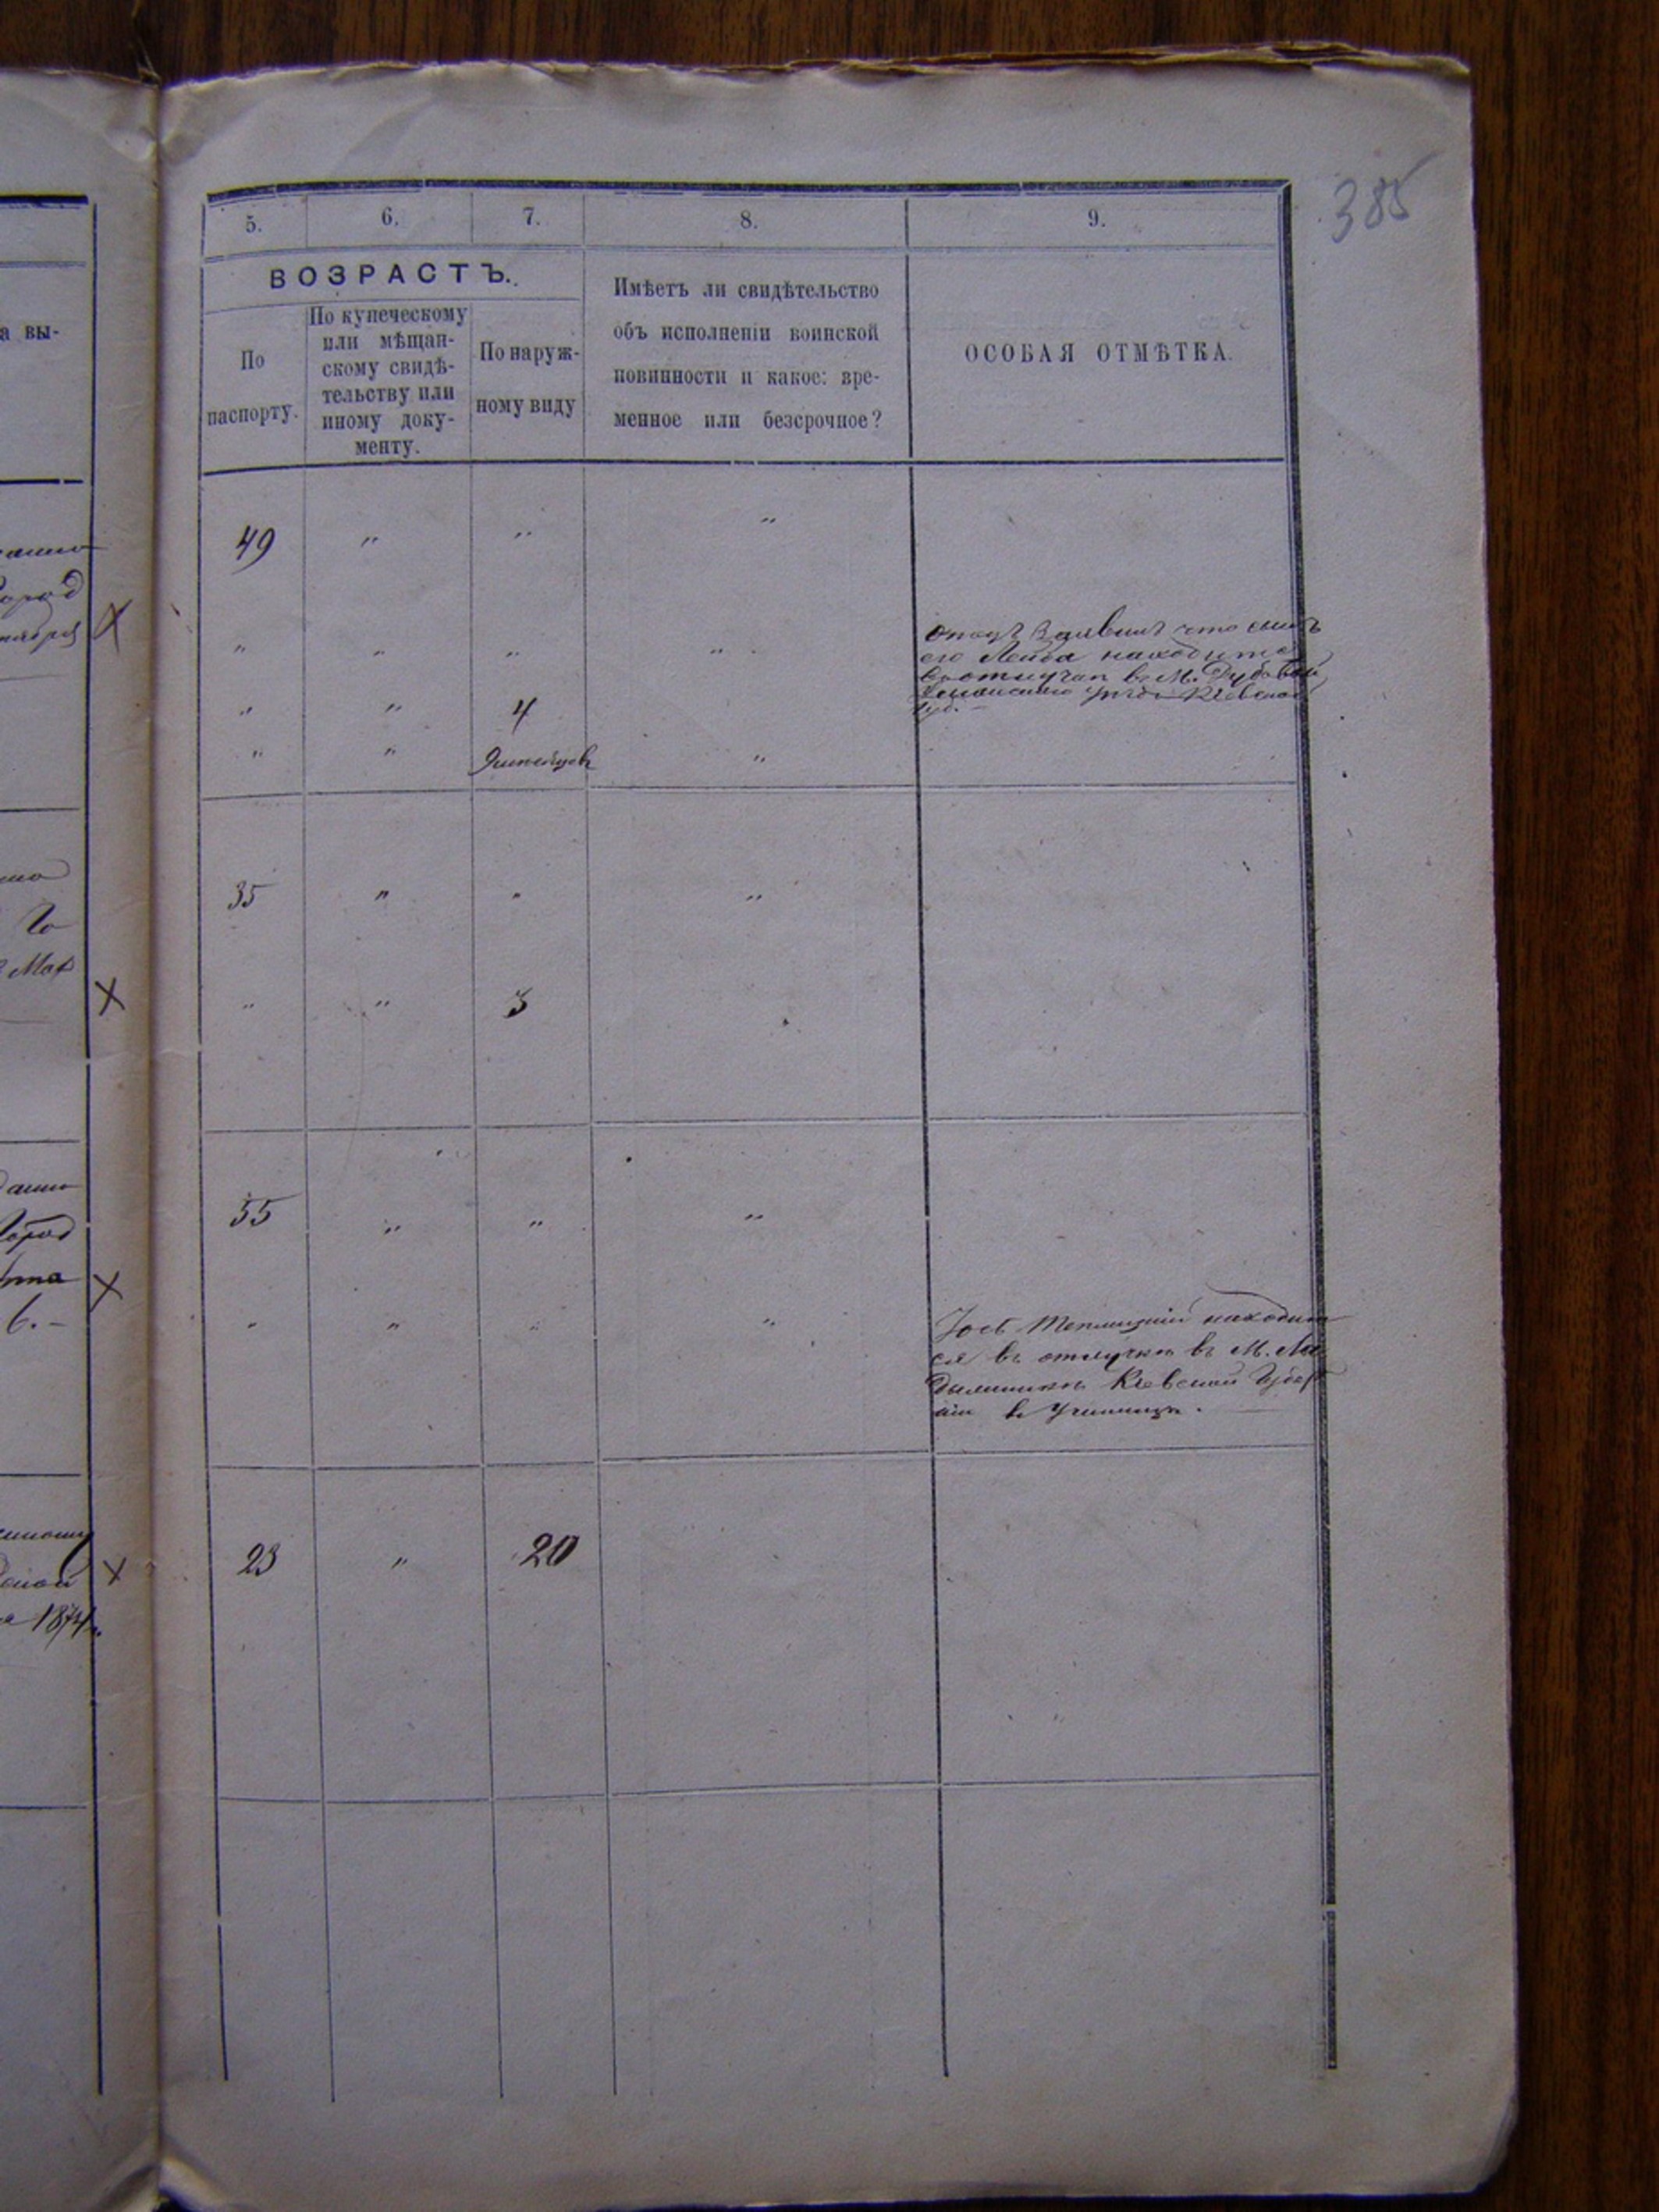 385
5. 6. 7. 8. 9.
ВОЗРАСТЪ.
По
паспорту.
По купеческому
или мѣщан-
скому свидѣ-
тельству или
иному доку-
менту.
По наруж-
ному виду
Имѣетъ ли свидѣтельство
объ исполненіи воинской
повинности и какое: вре-
менное или безсрочное?
ОСОБАЯ ОТМѢТКА.
а вы-
49 " " "
" " " "
Отецъ Заявилъ что сынъ
его Лейба находится
въ отлучкѣ в М. Дубовой
уѣзда Кіевской
Губ.
" " 4
" " "
35 " " "
" " 3
Мая
55 " " "
" " " "
Іось Теплицкій находит
ся въ отлучкѣ въ М.
Кіевской Губер
ніи в Училищѣ.
23 " 20
1874